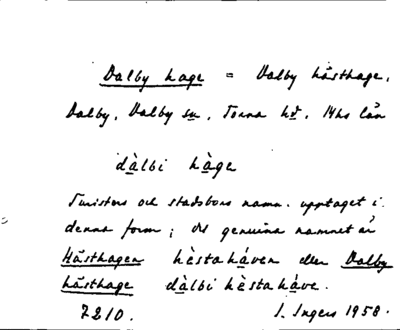 Dalby hage = Dalby hästhage,
Dalby, Dalby sn, Torna hd, Mhs län
dàlbi hàge
Turistens och stadsbons namn, upptaget i
denna form; det genuina namnet är
Hästhagen hèstahàven eller Dalby
hästhage dàlbi hèstahàve.
7210. I. Ingers 1958.